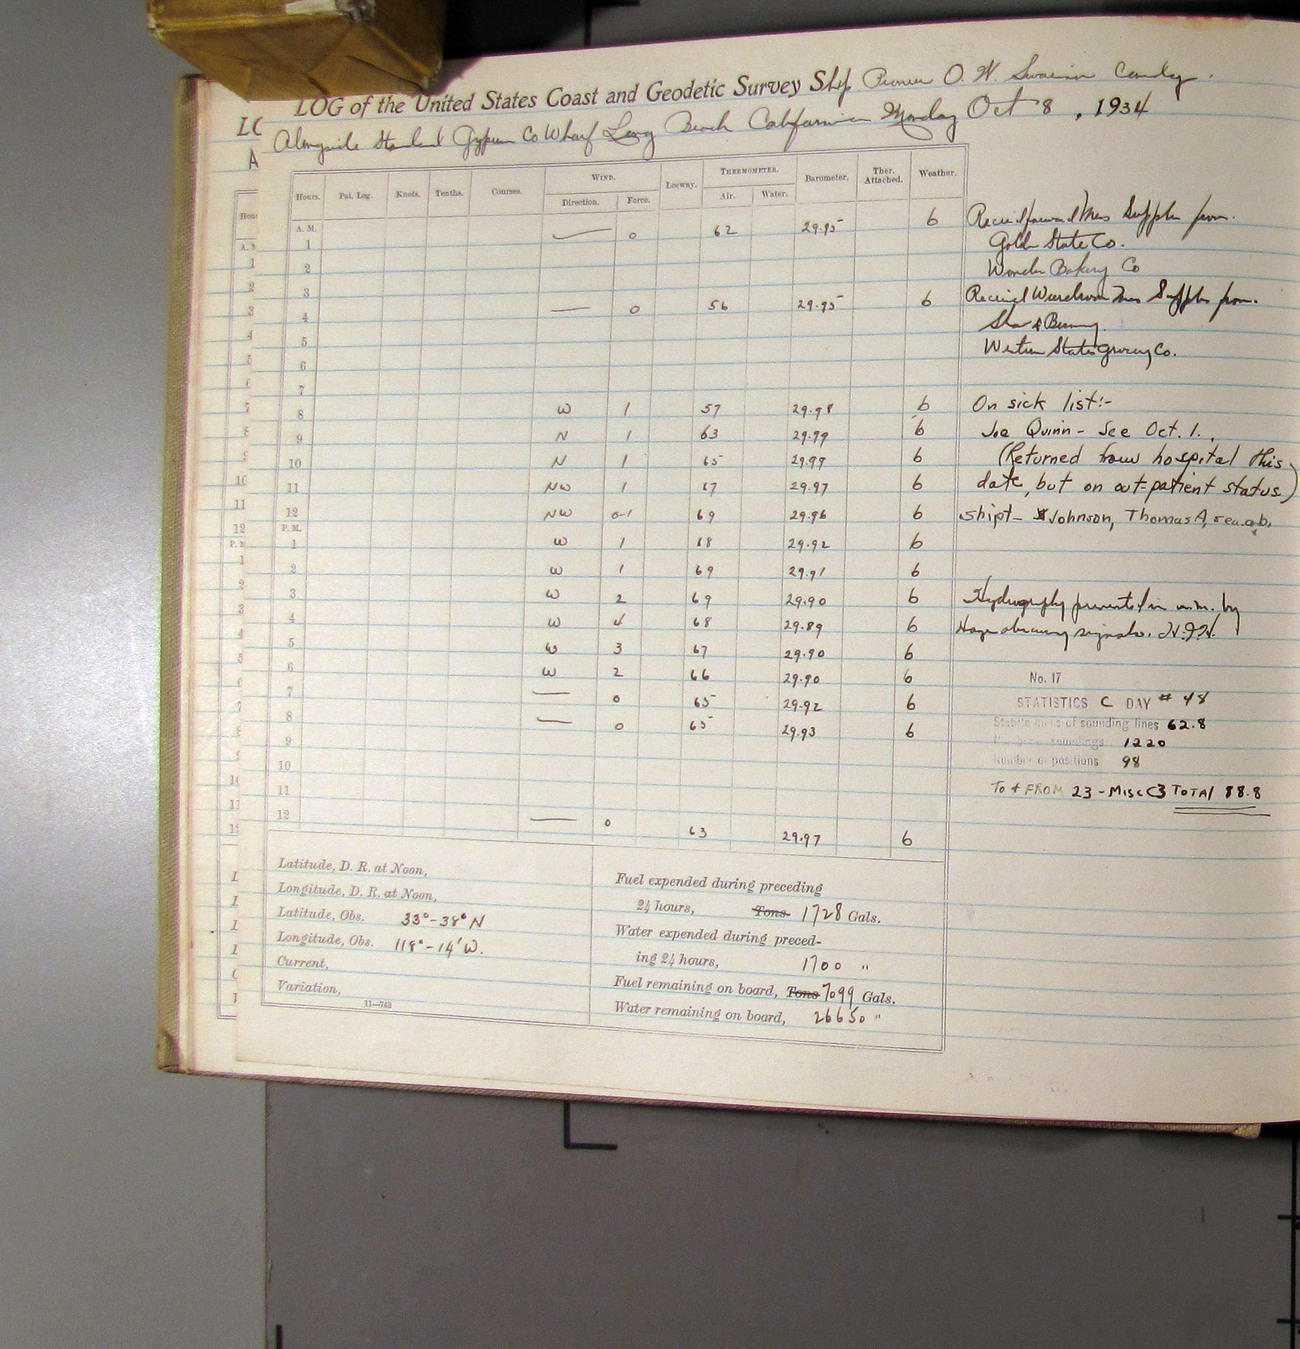 LOG of the United States Coast and Geodetic Survey Ship Pioneer O. W. Swainson Comdg.
Alongside Standard Gypsum Co Wharf Long Beach California Monday Oct 8, 1934
Hours. Pat. Log. Knots. Tenths. Courses. WIND. Direction. Force. Leeway. THERMOMETER. Air. Water. Barometer. Ther. Attached. Weather.
A. M.
1 — 0 62 29.95 b
2
3
4 — 0 56 29.95 b
5
6
7
8 W 1 57 29.98 b
9 N 1 63 29.99 b
10 N 1 65 29.99 b
11 NW 1 67 29.97 b
12 NW 0-1 69 29.96 b
P. M.
1 W 1 68 29.92 b
2 W 1 69 29.91 b
3 W 2 69 29.90 b
4 W 4 68 29.89 b
5 W 3 67 29.90 b
6 W 2 66 29.90 b
7 — 0 65 29.92 b
8 — 0 65 29.93 b
9
10
11
12 — 0 63 29.97 b
Received forward Mess Supplies from.
Golden State Co.
Wonder Bakery Co
Received Wardroom Mess Supplies from.
Western States Grocery Co.
On sick list:-
Joe Quinn - See Oct. 1.
(Returned from hospital this
date, but on out=patient status)
shipt - Johnson, Thomas A, sea. ab.
Hydrography prevented in a.m. by
Haze obscuring signals.
No. 17
STATISTICS C DAY # 48
Statute miles of sounding lines 62.8
Number soundings 1220
Number of positions 98
To & FROM 23 - Misc C3 TOTAl 88.8
Latitude, D. R. at Noon,
Longitude, D. R. at Noon,
Latitude, Obs. 33° - 38' N
Longitude, Obs. 118° - 14' W.
Current,
Variation,
11—743
Fuel expended during preceding
24 hours, Tons 1728 Gals.
Water expended during preced-
ing 24 hours, 1700 "
Fuel remaining on board, Tons 7099 Gals.
Water remaining on board, 26650 "